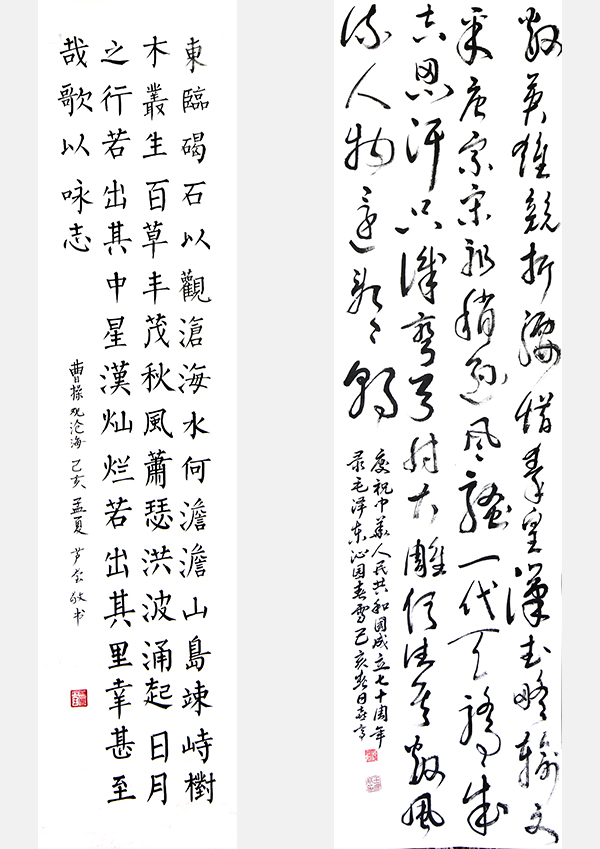 東臨碣石以觀滄海水何澹澹山島竦峙樹
木叢生百草丰茂秋風蕭瑟洪波涌起日月
之行若出其中星漢灿烂若出其里幸甚至
哉歌以咏志
曹操观沧海 己亥孟夏 敬书
数英雄競折腰惜秦皇漢武略輸文
采唐宗宋祖稍逊风骚一代天骄成
吉思汗只識弯弓射大雕俱往矣数风
流人物還看今朝
慶祝中華人民共和國成立七十周年
录毛泽东沁园春雪己亥春日